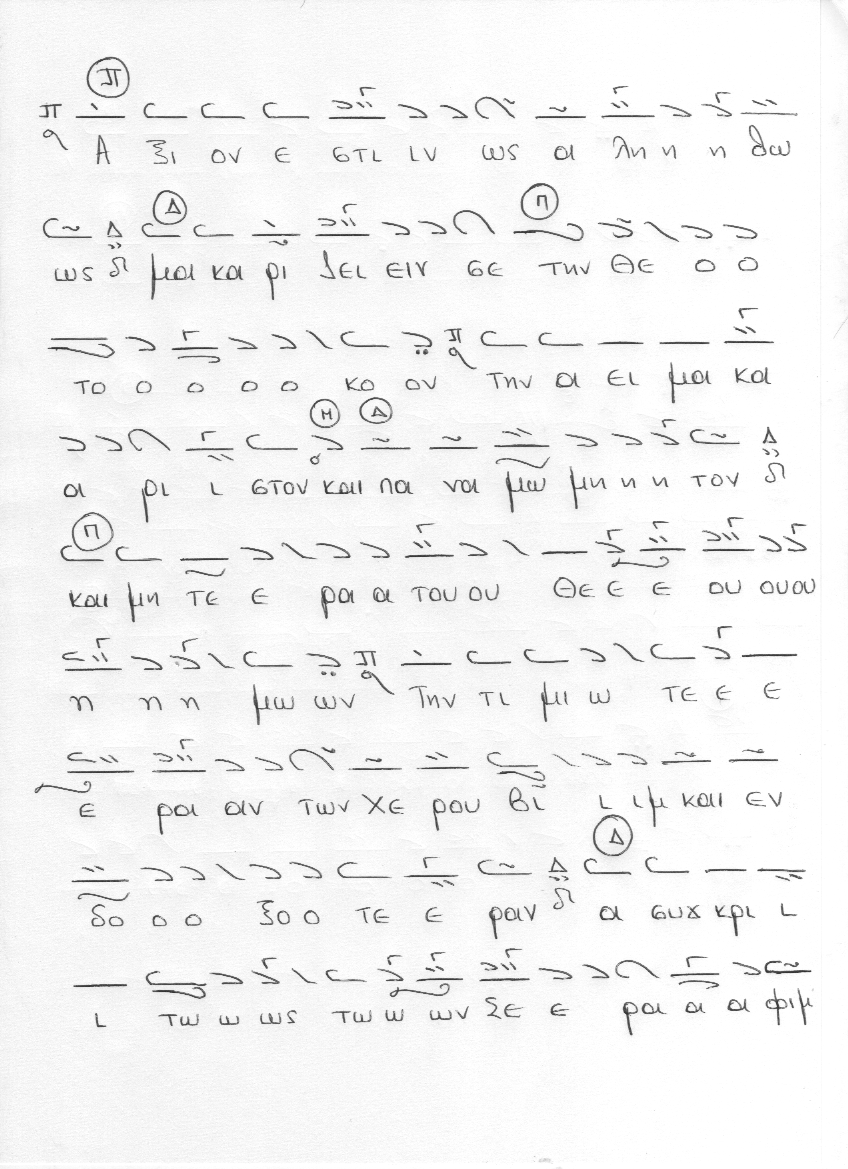 Π
Α ξι ον ε στι ιν ως α λη η η θω
Δ Π
ως μα κα ρι ζει ειν σε την Θε ο ο
το ο ο ο ο κο ον την α ει μα κα
Μ Δ
α ρι ι στον και πα να μω μη η η τον
Π
και μη τε ε ρα α του ου Θε ε ε ου ουου
η η η μω ων Την τι μι ω τε ε ε
ε ρα αν των χε ρου βι ι ιμ και εν
Δ
δο ο ο ξο ο τε ε ραν α συγ κρι ι
ι τω ω ως τω ω ων Σε ε ρα α α φιμ